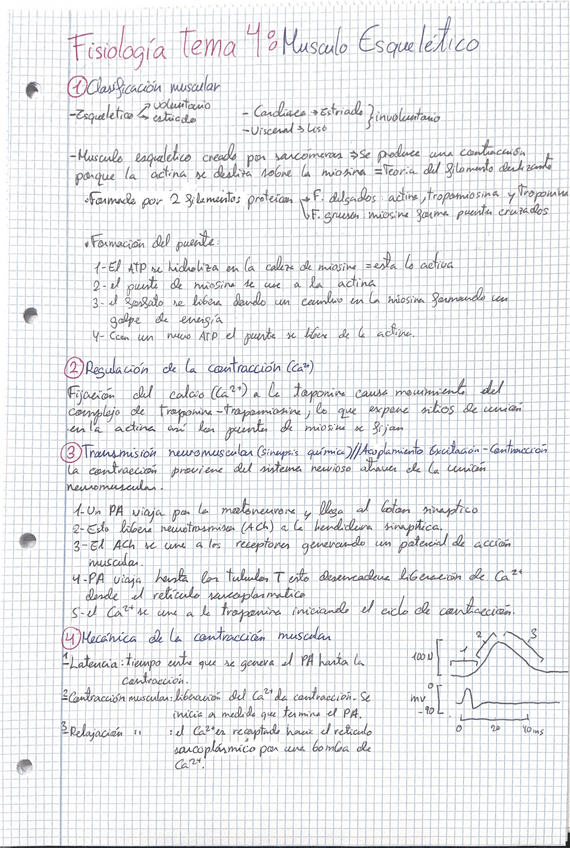 Fisiología tema 4: Musculo Esquelético
① Clasificación muscular
-Esqueletico voluntario estriado
- Cardiaco → Estriado } involuntario
- Visceral → Liso
-Musculo esqueletico creado por sarcómeros ⇒ Se produce una contracción
porque la actina se desliza sobre la miosina = Teoria del filamento deslizante
•Formado por 2 filamentos proteicos → F. delgados: actina, tropomiosina y Troponina
F. gruesos: miosina forma puentes cruzados
• Formación del puente:
1-El ATP se hidroliza en la cabeza de miosina = esto la activa
2- el puente de miosina se une a la actina
3- el fosfato se libera dando un cambio en la miosina formando un
golpe de energía
4- Con un nuevo ATP el puente se libera de la actina.
② Regulación de la contracción (Ca²⁺)
Fijación del calcio (Ca²⁺) a la troponina causa movimiento del
complejo de troponina-tropomiosina, lo que expone sitios de unión
en la actina así los puentes de miosina se fijan
③ Transmisión neuromuscular (sinapsis química)//Acoplamiento Excitación-Contracción
La contracción proviene del sistema nervioso atraves de la unión
neuromuscular.
1-Un PA viaja por la motoneurona y llega al boton sinaptico
2-Esto libera neurotrasmisor (ACh) a la hendidura sinaptica.
3-El ACh se une a los receptores generando un potencial de acción
muscular.
4-PA viaja hasta los tubulos T esto desencadena liberación de Ca²⁺
desde el reticulo sarcoplasmatico
5-el Ca²⁺ se une a la troponina iniciando el ciclo de contracción.
④ Mecánica de la contracción muscular
1-Latencia: tiempo entre que se genera el PA hasta la
contracción.
2-Contracción muscular: liberación del Ca²⁺ da contracción. Se
inicia a medida que termina el PA.
3-Relajación " : el Ca²⁺ es recaptado hacia el reticulo
sarcoplásmico por una bomba de
Ca²⁺.
1 2 3
100 N
0
mv
-90
0 20 40 ms